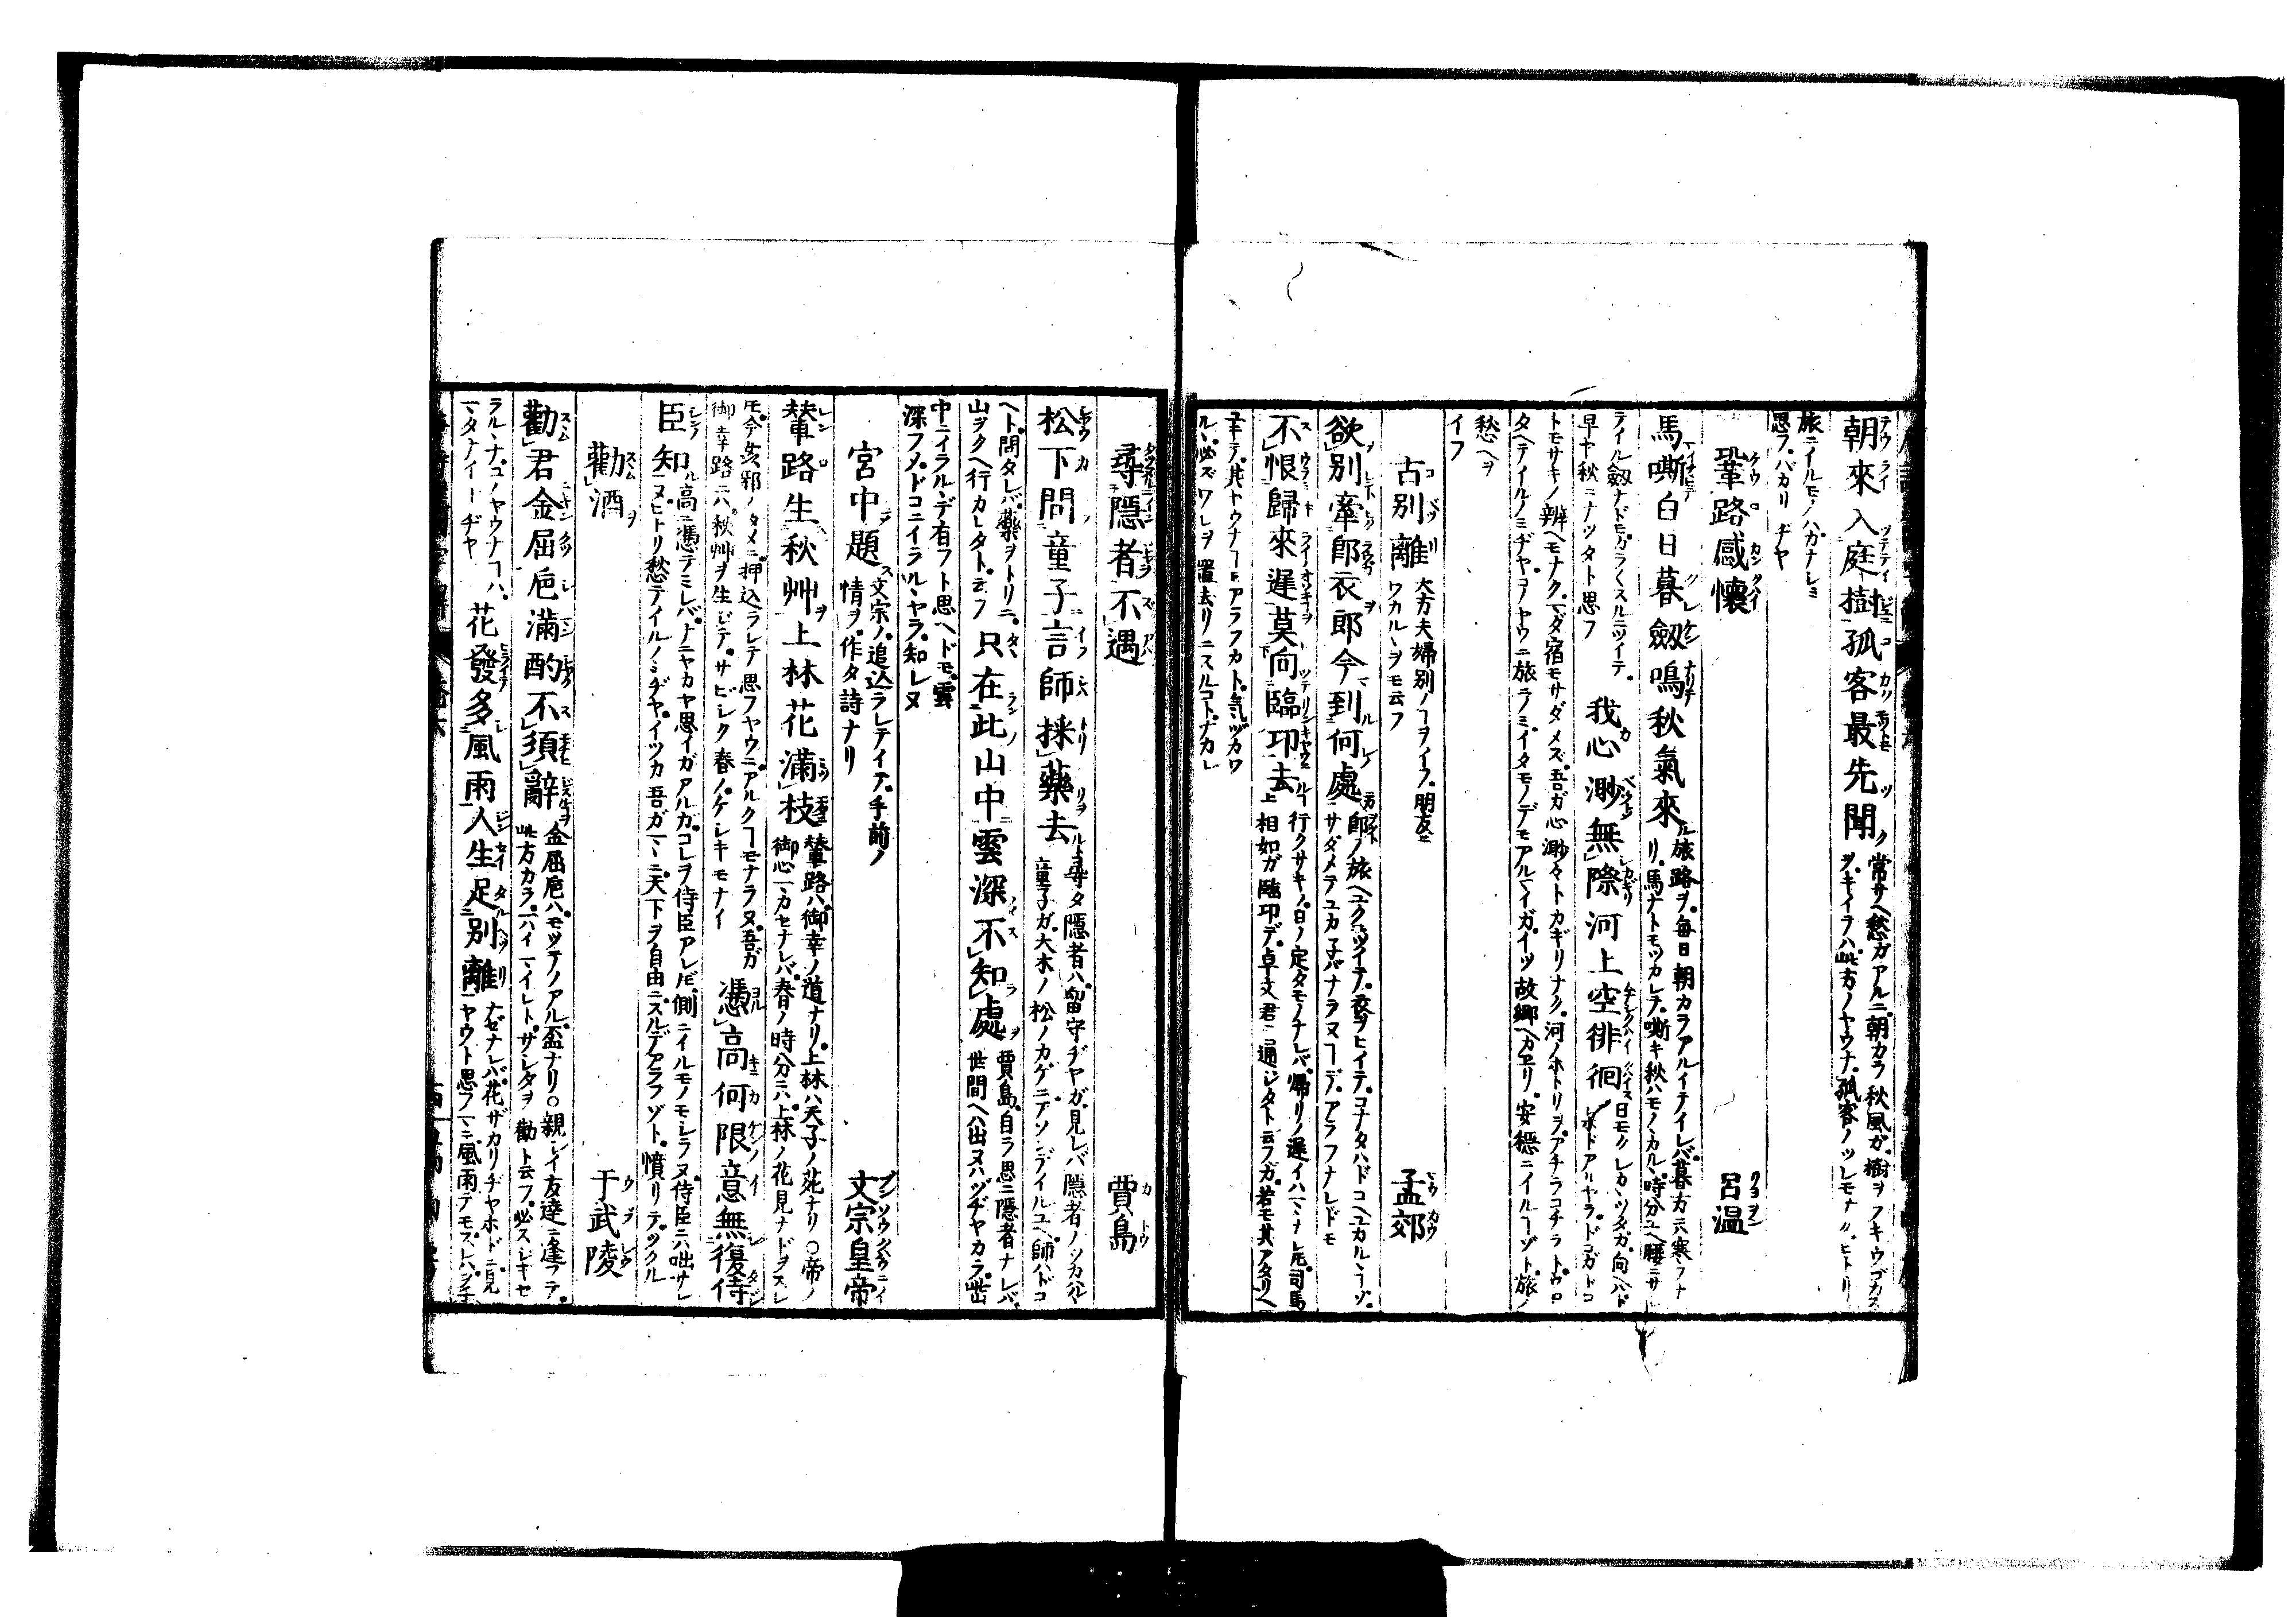 朝來入庭樹孤客最先聞 常サヘ愁ガアルニ朝カラ秋風ガ樹ヲフキウゴカス
ヲキイテハ此方ノヤウナ孤客ノツレモナク ヒトリ
旅ニイルモノハガナレミ
思フバカリヂヤ
鞏路感懷 呂温
馬嘶白日暮劔鳴秋氣來 旅路ヲ毎日朝カラアルイテイレバ暮方ニハ寒フナ
リ馬ナトモツカレテ嘶キ秋ハモノヽカルヽ時分ユヘ腰ニサ
テイル劔ナドモガラ〳〵スルニツイテ
早ヤ秋ニナツタト思フ
我心渺無際河上空徘徊 日モクレカヽツタガ向ヘハド
レホドアリヤラドコガドコ
トモサキノ辨ヘモナクマダ宿モサダメズ吾ガ心渺々トカギリナク河ノホトリヲアチラコチラトウロ
タヘテイルノミヂヤコノヤウニ旅ラミイタモノデモアルマイガイツ故郷ヘカヱリ安穩ニイルヿゾト旅ノ
愁ヘヲ
イフ
古別離 大方夫婦別ノヿヲイフ朋友ニ
ワカルヽヲモ云フ 孟郊
欲別牽郎衣郎今到何處 郎ノ旅ヘユクニツイテ衣ヲヒイテコナタハドコヘユカルヽヿゾ
サダメテユカ子バナラヌヿデアラフナレドモ
不恨歸來遲莫向臨卭去 行クサキノ日ノ定タモノナレバ帰リノ遲イハマヽナレ𪜈司馬
相如ガ臨卭デ卓文君ニ通ジタト云フガ若モ其アタリヘ
ユキテ其ヤウナヿモアラフカト気ヅカワ
ルヽ必ズワレヲ置去リニスルコトナカレ
尋隱者不遇 賈島
松下問童子言師採藥去 尋タ隱者ハ留守ヂヤガ見レバ隱者ノツカハルヽ
童子ガ大木ノ松ノカゲニアソンデイルユヘ師ハドコ
ヘト問タレバ藥ヲトリニ
山ヲクヘ行カレタト云フ
只在此山中雲深不知處 賈島自ラ思ニ隱者ナレバ
世間ヘハ出ヌハヅヂヤカラ此
中ニイラルヽデ有フト思ヘドモ雲
深フメドコニイラルヽヤラ知レヌ
宮中題 文宗ノ追込ラレテイテ手前ノ
情ヲ作タ詩ナリ 文宗皇帝
輦路生秋艸上林花滿枝 輦路ハ御幸ノ道ナリ上林ハ天子ノ苑ナリ○帝ノ
御心マカセナレバ春ノ時分ニハ上林ノ花見ナドヲスレ
𪜈今奸邪ノタメニ押込ラレテ思フヤウニアルクヿモナラヌ吾ガ
御幸路ニハ秋艸ヲ生ジテサビシク春ノケシキモナイ
憑高何限意無復侍
臣知 高ニ憑テミレバナニヤカヤ思イガアルカコレヲ侍臣アレ𪜈側ニイルモノモシラヌ侍臣ニハ咄サレ
ヌヒトリ愁テイルノミヂヤイツカ吾ガマヽニ天下ヲ自由ニスルデアラフゾト憤リテツクル
勸酒 于武陵
勸君金屈巵滿酌不須辭 金屈巵ハモツテノアル盃ナリ○親シイ友達ニ逢フテ
此方カラ一ハイマイレトサシタヲ勸ト云フ必スレキセ
ラルヽナコノヤウナヿハ
マタナイヿヂヤ
花發多風雨人生足別離 ナゼナレバ花ザカリヂヤホドニ見
ヤウト思フマニ風雨デモスレバヂキ